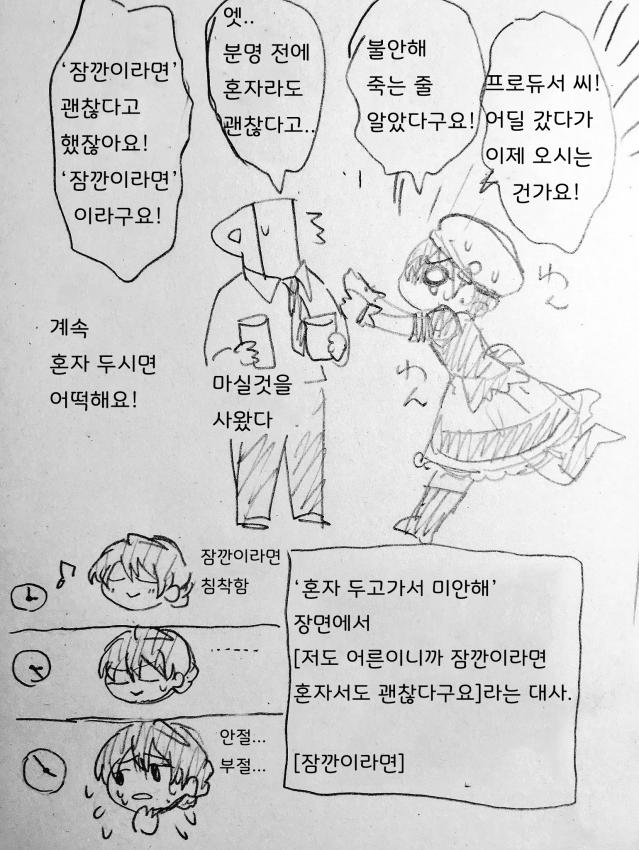 프로듀서 씨!
어딜 갔다가
이제 오시는
건가요!
불안해
죽는 줄
알았다구요!
엣..
분명 전에
혼자라도
괜찮다고..
‘잠깐이라면’
괜찮다고
했잖아요!
‘잠깐이라면’
이라구요!
계속
혼자 두시면
어떡해요!
마실것을
사왔다
わ〜
わ〜
잠깐이라면
침착함
........
안절...
부절...
‘혼자 두고가서 미안해’
장면에서
[저도 어른이니까 잠깐이라면
혼자서도 괜찮다구요]라는 대사.
[잠깐이라면]